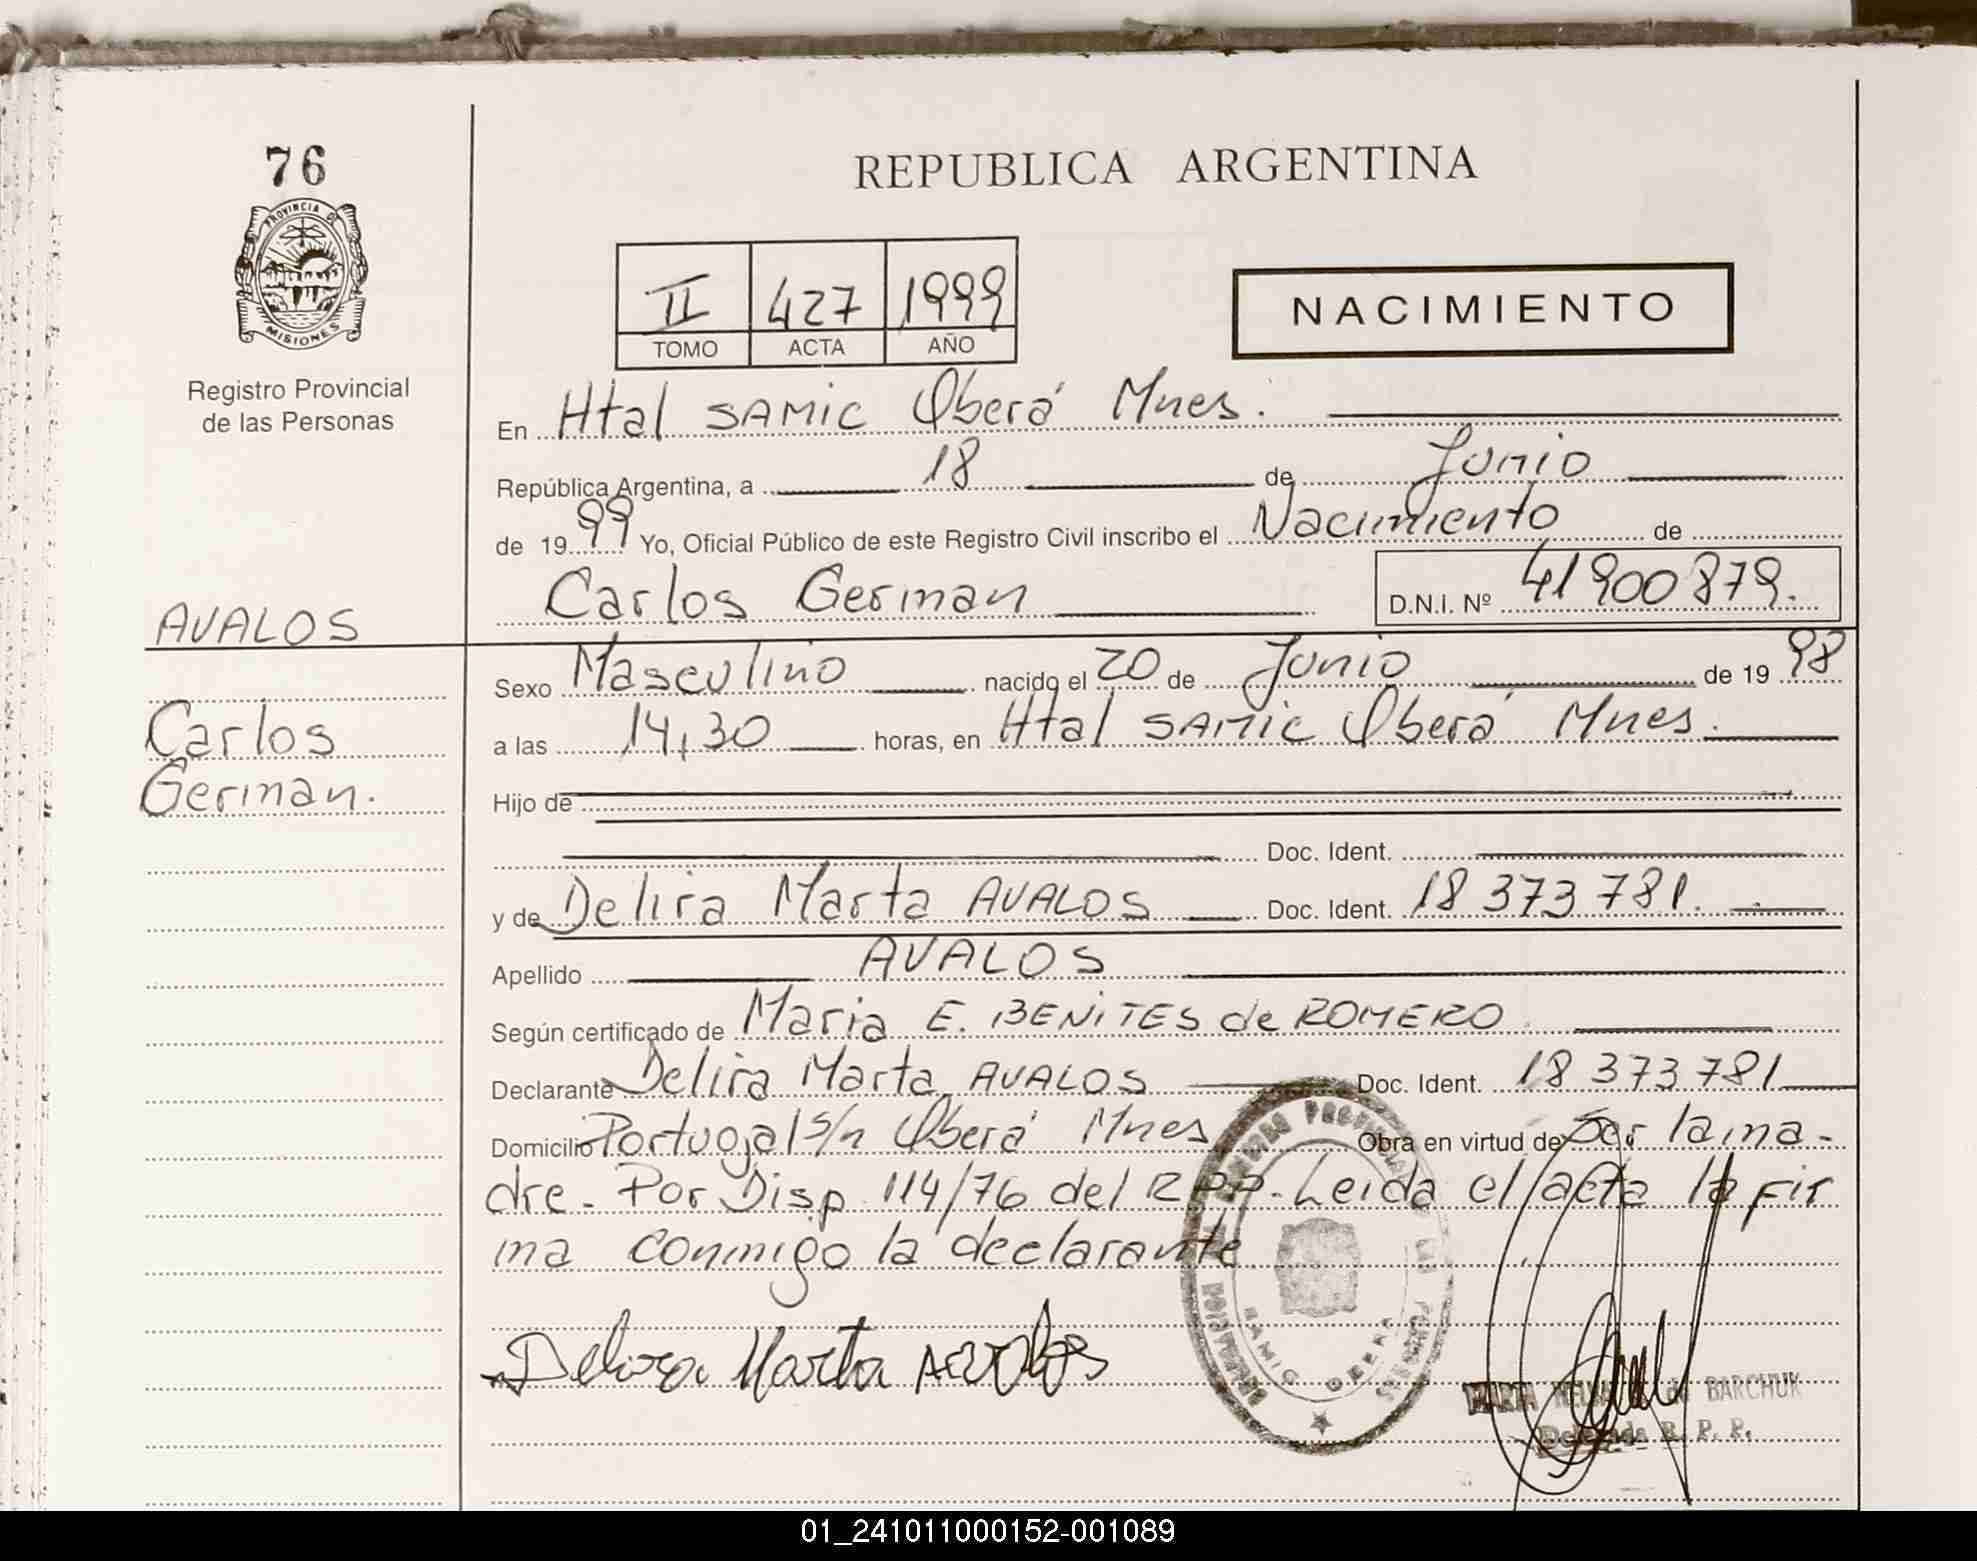 76
PROVINCIA DE
MISIONES
Registro Provincial
de las Personas
AVALOS
Carlos
German.
REPUBLICA ARGENTINA
II 427 1999
TOMO ACTA AÑO
NACIMIENTO
En Htal SAMIC Oberá Mnes.
República Argentina, a 18 de Junio
de 1999 Yo, Oficial Público de este Registro Civil inscribo el Nacimiento de
Carlos German D.N.I. Nº 41900879.
Sexo Masculino nacido el 20 de Junio de 1998
a las 14,30 horas, en Htal SAMIC Oberá Mnes.
Hijo de
Doc. Ident.
y de Delira Marta AVALOS Doc. Ident. 18 373 781.
Apellido AVALOS
Según certificado de Maria E. BENITES de ROMERO
Declarante Delira Marta AVALOS Doc. Ident. 18 373 781
Domicilio Portugal s/n Oberá Mnes Obra en virtud de Ser la ma-
dre. Por Disp. 114/76 del R.P.P. Leida el acta la fir
ma conmigo la declarante.
Delira Marta Avalos
SAMIC OBERA
MARTA de BARCHUK
Delegada R. P. P.
01_241011000152-001089